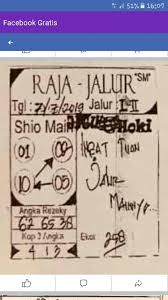 51% 16:09
Facebook Gratis
RAJA - JALUR "SM"
Tgl : 7/7/2019 Jalur : I-II
Shio Main Hoki
01 09
10 05
INGAT TUAN
JALUR
MAINNYA
Angka Rezeky
62 65 38
Kop 3 Angka
4 1 3
Ekor 258